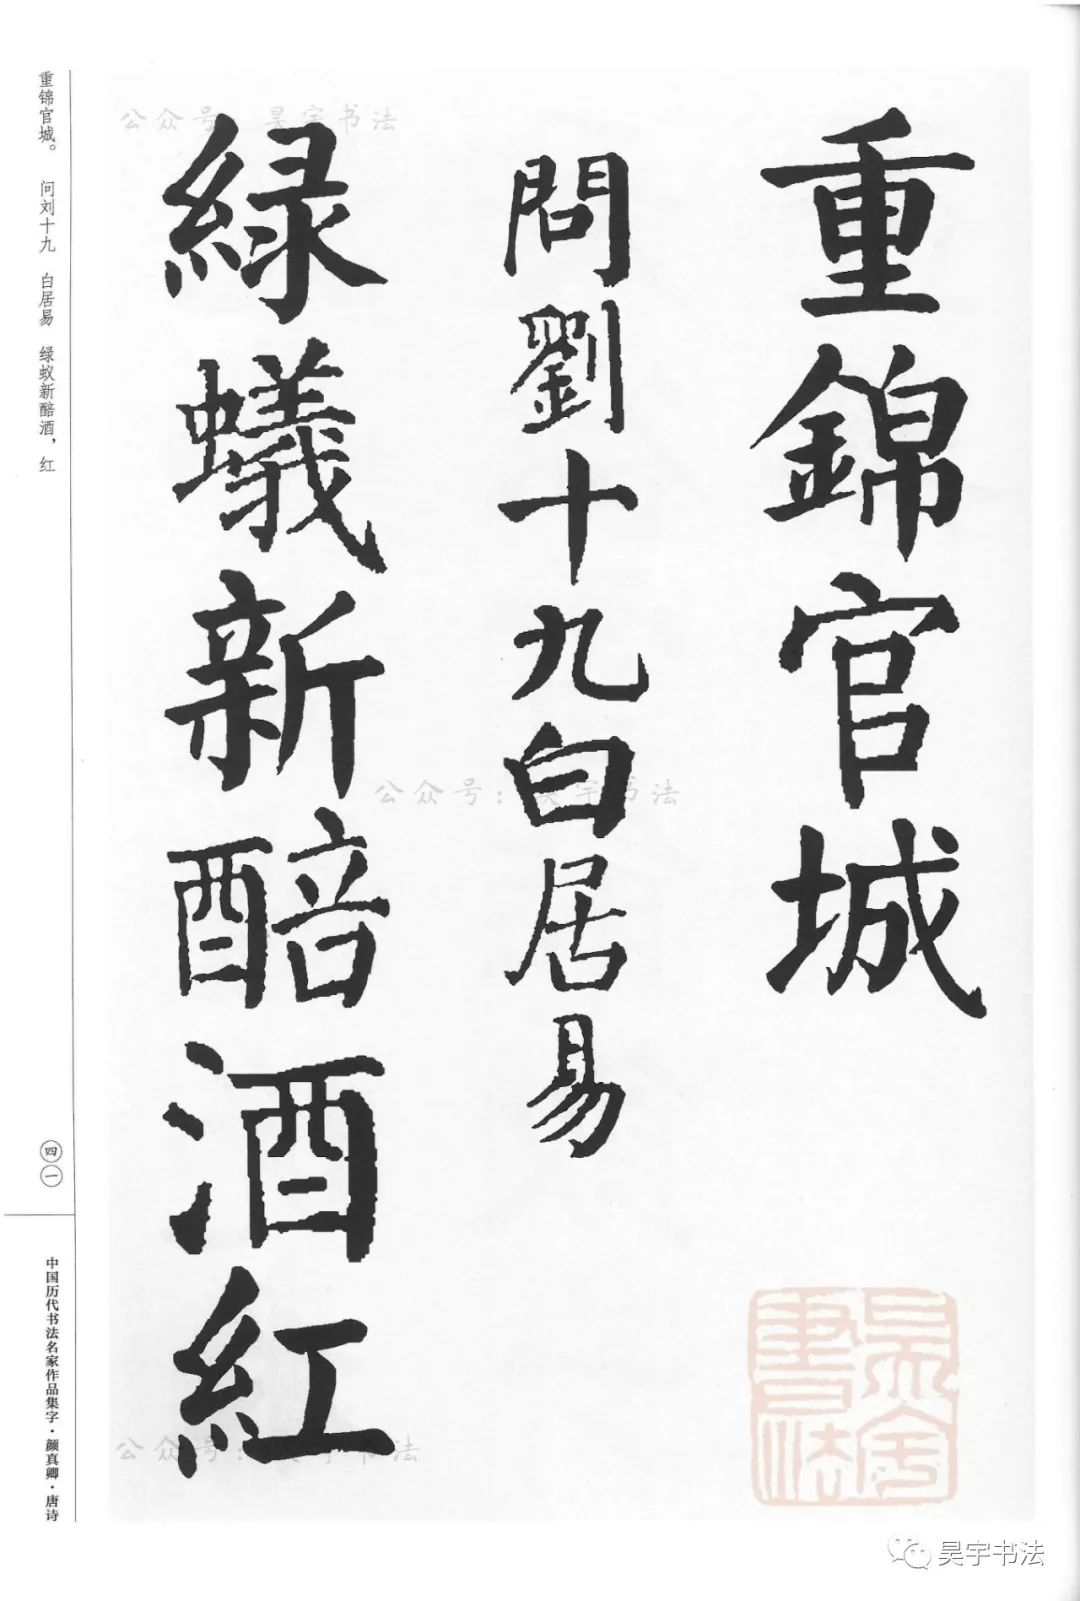 重錦官城
問劉十九白居易
緑蟻新醅酒紅
重锦官城。 问刘十九 白居易 绿蚁新醅酒，红
四一
中国历代书法名家作品集字·颜真卿·唐诗
公众号：昊宇书法
公众号：昊宇书法
公众号：昊宇书法
昊宇書法
昊宇书法